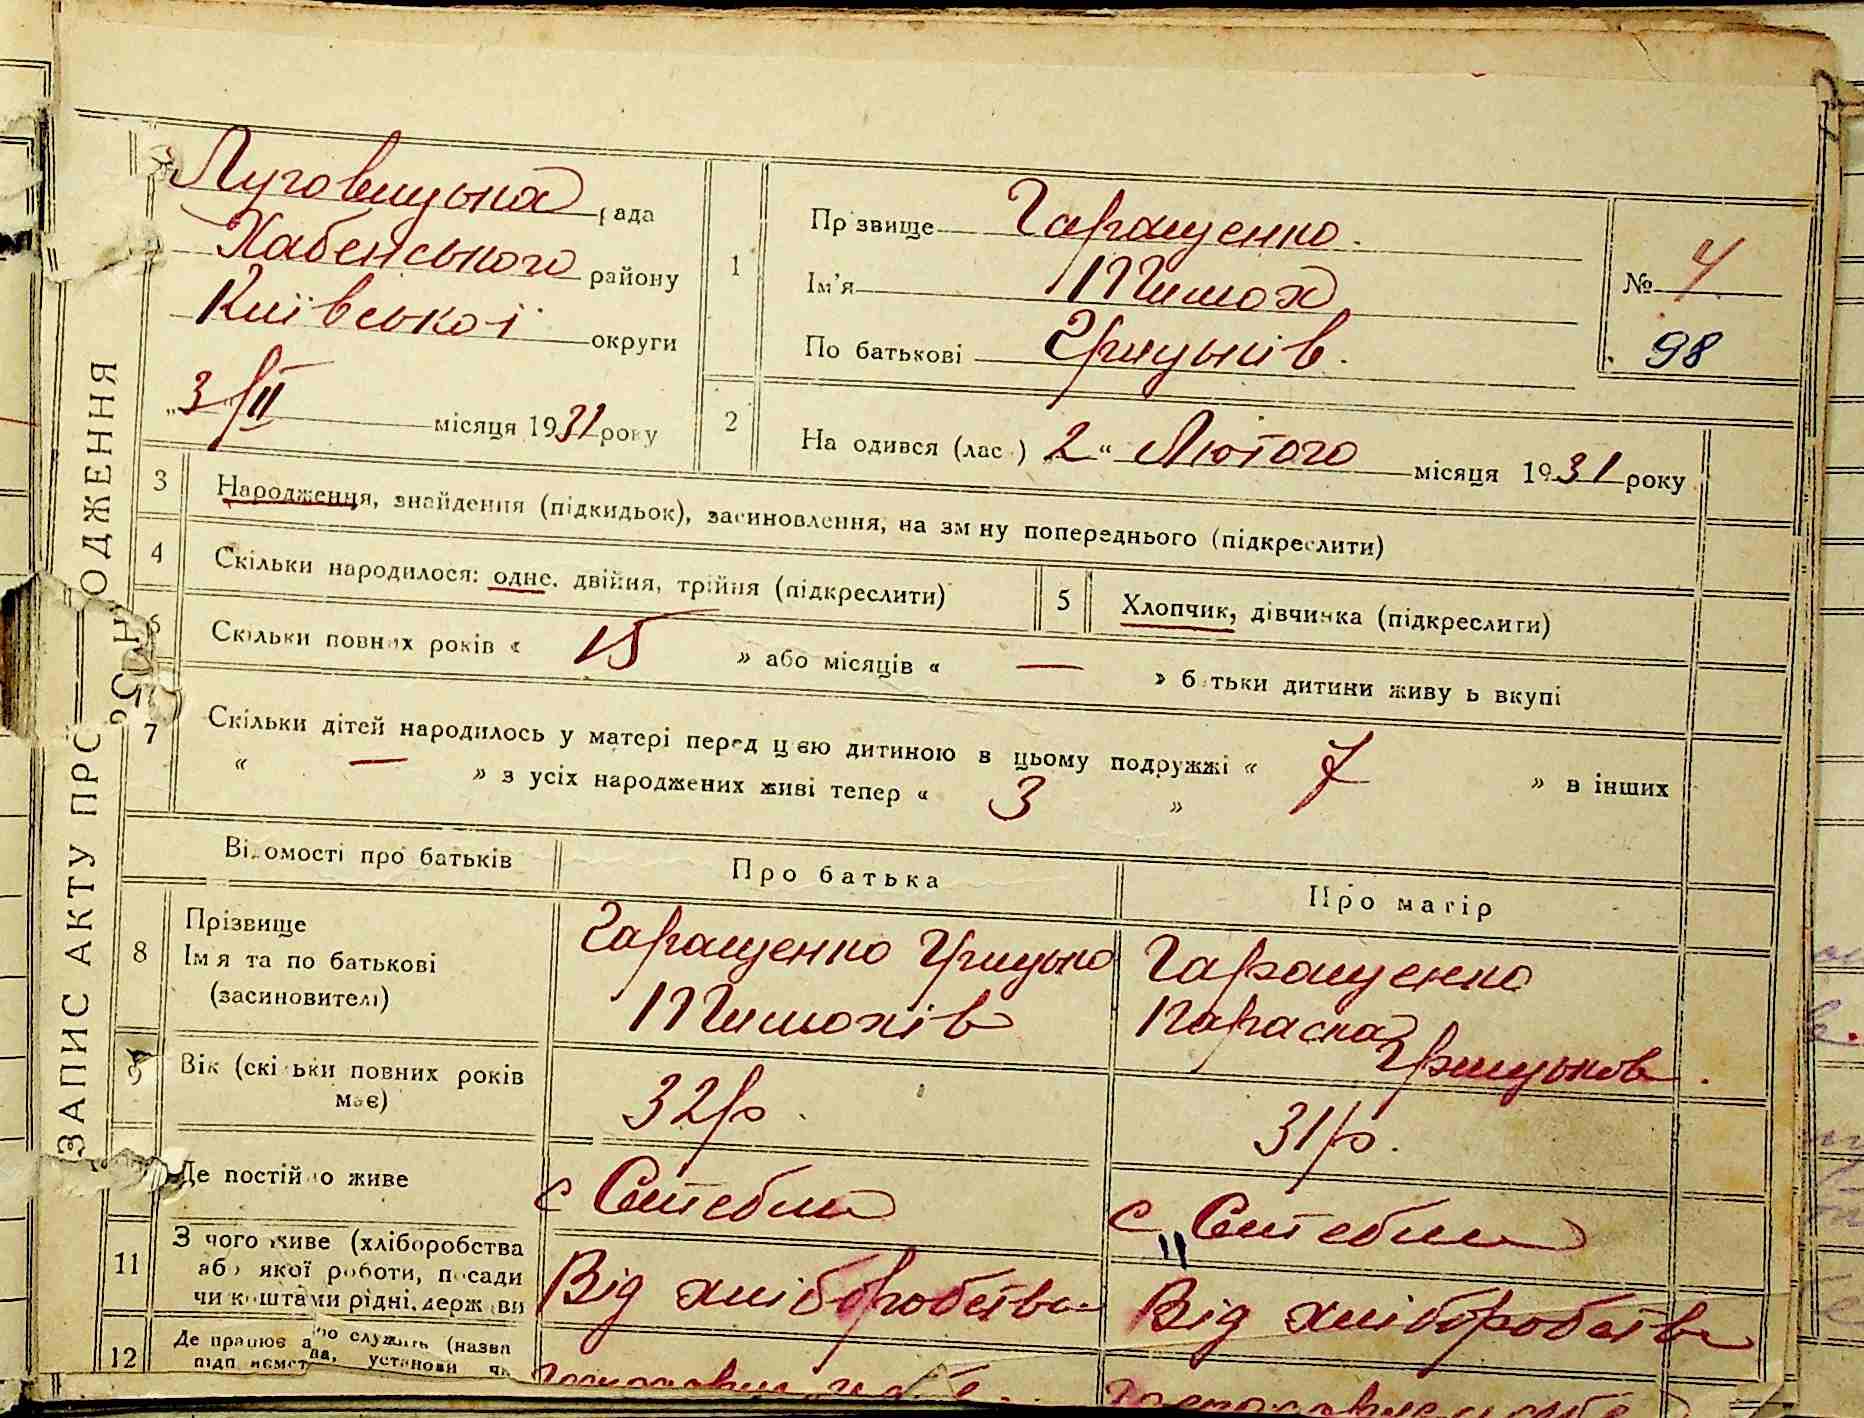 ЗАПИС АКТУ ПРО НАРОДЖЕННЯ
Луговицька рада
Хабенського району
Київської округи
„3/II місяця 1931 року
1
Пр звище Гаращенко.
Ім'я Тимох
По батькові Грицьків.
№ 4
98
2
На одився (лас ) „2“ Лютого місяця 1931 року
3 Народження, знайдення (підкидьок), засиновлення, на зм ну попереднього (підкреслити)
4 Скільки народилося: одне, двійня, трійня (підкреслити)
5 Хлопчик, дівчинка (підкреслити)
6 Скільки повних років « 15 » або місяців « — » б тьки дитини живу ь вкупі
7 Скільки дітей народилось у матері перед цією дитиною в цьому подружжі « 7 » в інших
« — » з усіх народжених живі тепер « 3 »
Ві омості про батьків
Про батька
Про матір
8 Прізвище
Ім я та по батькові
(засиновителі)
Гаращенко Грицько
Тимохів
Гаращенко
Параска
Грицьков.
9 Вік (скі ьки повних років
має)
32 р.
31 р.
Де постій о живе
с Ситебли
с „ Ситебли
11 З чого живе (хліборобства
або якої роботи, посади
чи коштами рідні, держ ви
Від хліборобства
Від хліборобств
12 Де працює або служить (назва
підп иємства, установи